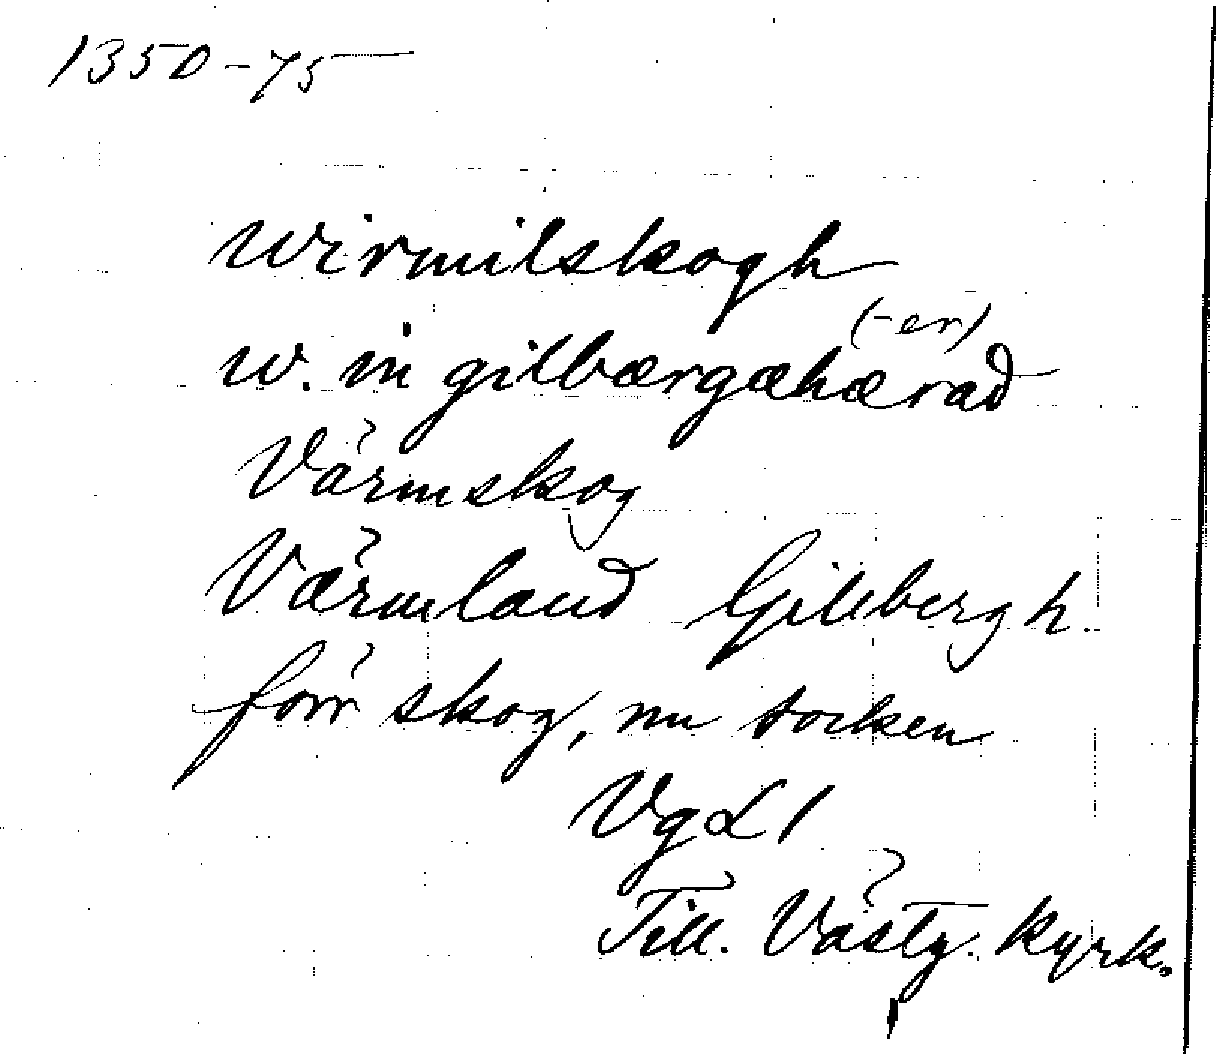 1350-75
wirmilskogh
(-er)
w. in gilbærgæhærad
Värmskog
Värmland Gillbergh.
förr skog, nu socken
VgL 1
Till. Västg. kyrk.